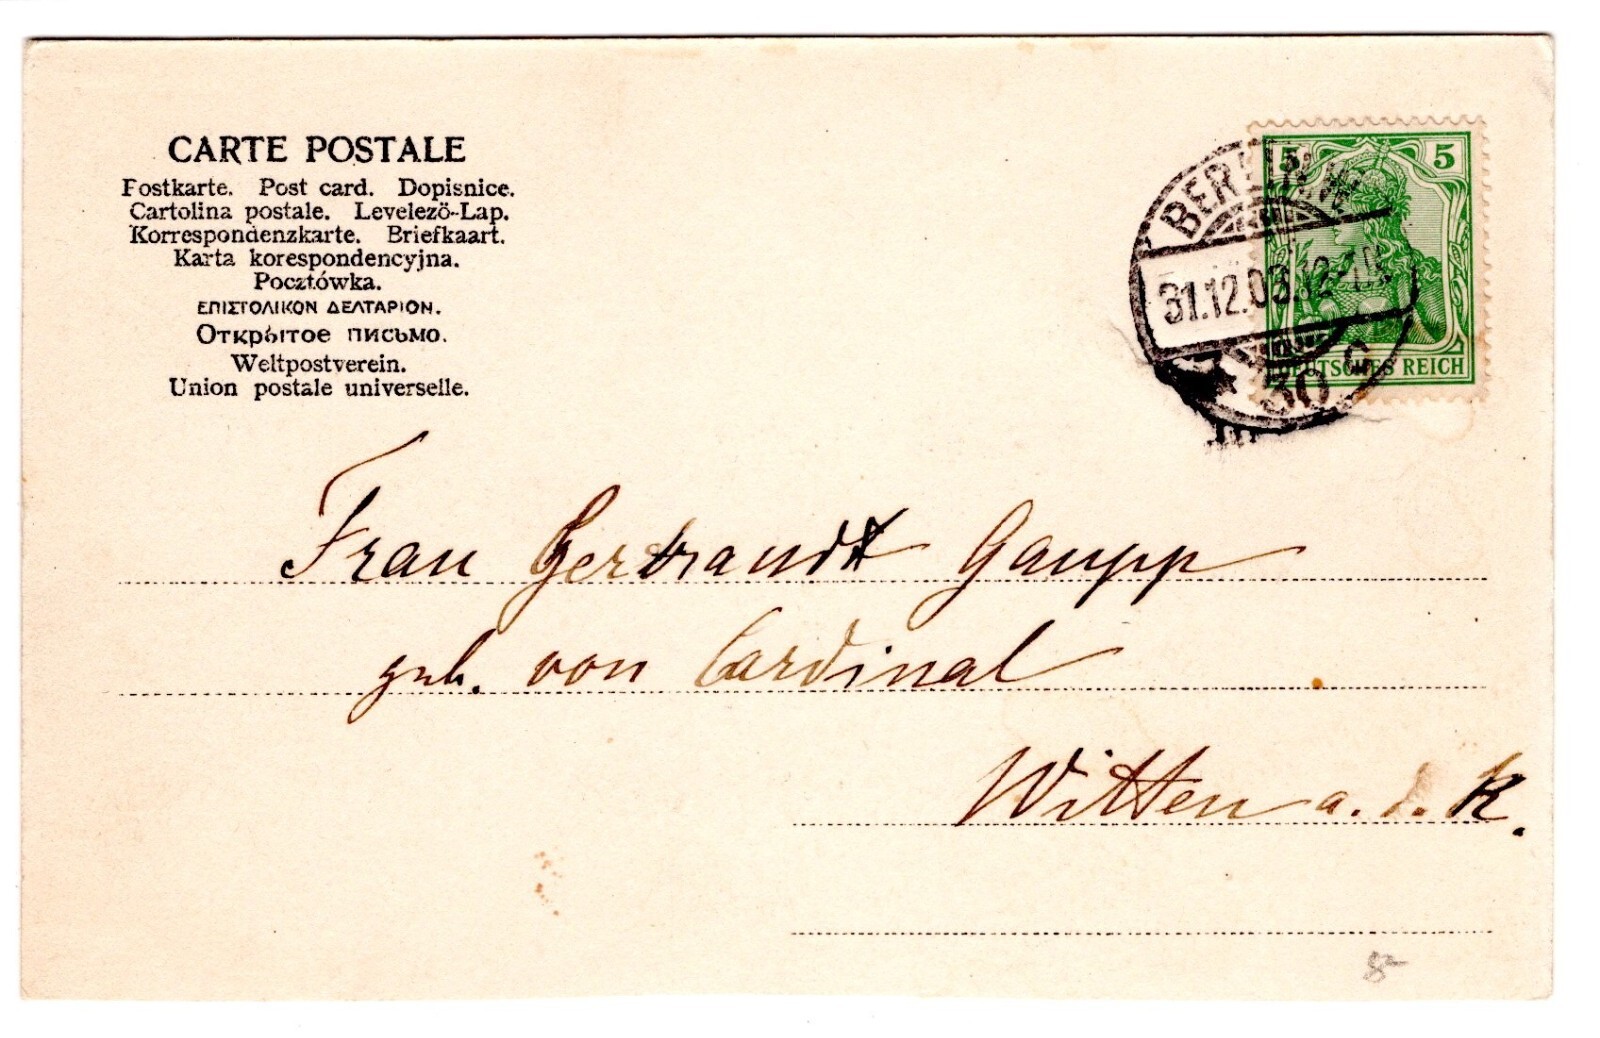 CARTE POSTALE
Postkarte. Post card. Dopisnice.
Cartolina postale. Levelezö-Lap.
Korrespondenzkarte. Briefkaart.
Karta korespondencyjna.
Pocztówka.
ΕΠΙΣΤΟΛΙΚΟΝ ΔΕΛΤΑΡΙΟΝ.
Открытое письмо.
Weltpostverein.
Union postale universelle.
5 5
DEUTSCHES REICH
BERLIN W
31.12.03.12-1N
* 30 c
Frau Gertraudt Gaupp
geb. von Cardinal
Witten a. d. R.